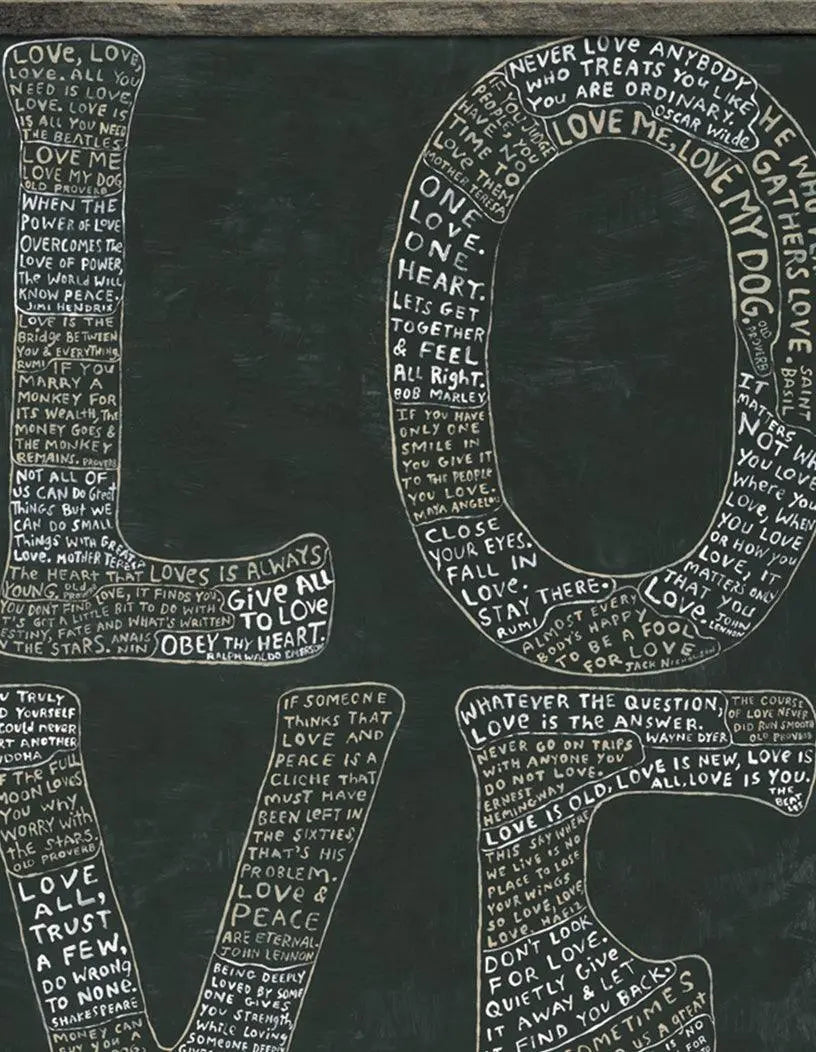 LOVE, LOVE,
LOVE. ALL YOU
NEED IS LOVE.
LOVE. LOVE IS
IS ALL YOU NEED
THE BEATLES
LOVE ME
LOVE MY DOG
OLD PROVERB
WHEN THE
POWER OF LOVE
OVERCOMES THE
LOVE OF POWER,
The WORLD WILL
KNOW PEACE.
JIMI HENDRIX
LOVE IS THE
Bridge BETWEEN
YOU & EVERYTHING
RUMI
IF YOU
MARRY A
MONKEY FOR
ITS WEALTH, The
MONEY GOES &
THE MONKEY
REMAINS. PROVERB
NOT ALL OF
US CAN DO Great
Things BUT WE
CAN DO SMALL
Things WITH GREAT
LOVE. MOTHER TERESA
THE HEART THAT LOVES IS ALWAYS
YOUNG. OLD PROVERB
YOU DON'T FIND LOVE, IT FINDS YOU,
T'S GOT A LITTLE BIT TO DO WITH
ESTINY, FATE AND WHAT'S WRITTEN
THE STARS. ANAIS NIN
GIVE ALL
TO LOVE
OBEY THY HEART.
RALPH WALDO EMERSON
IF YOU JUDGE
PEOPLE, YOU
HAVE NO
TIME TO
LOVE THEM
MOTHER TERESA
NEVER LOVE ANYBODY
WHO TREATS YOU LIKE
YOU ARE ORDINARY.
OSCAR Wilde
LOVE ME, LOVE MY DOG.
OLD PROVERB
HE WHO
GATHERS LOVE.
SAINT
BASIL
ONE
LOVE.
ONE
HEART.
LETS GET
TOGETHER
& FEEL
ALL RigHT.
BOB MARLEY
IF YOU HAVE
ONLY ONE
SMILE IN
YOU GIVE IT
TO THE PEOPLE
YOU LOVE.
MAYA ANGELOU
CLOSE
YOUR EYES.
FALL IN
LOVE.
STAY THERE.
RUMI
ALMOST EVERY
BODY'S HAPPY
TO BE A FOOL
FOR LOVE
JACK NICHOLSON
IT
MATTERS
NOT WH
YOU LOVE
Where YOU
LOVE, WHEN
YOU LOVE
OR HOW YOU
LOVE, IT
MATTERS ONLY
THAT YOU
LOVE. JOHN
LENNON
U TRULY
D YOURSELF
COULD NEVER
RT ANOTHER
UDDHA
F THE FULL
MOON LOVES
YOU Why
WORRY with
the STARS.
OLD PROVERB
LOVE
ALL,
TRUST
A FEW,
DO WRONG
TO NONE.
SHAKESPEARE
MONEY CAN
BUY YOU A
IF SOMEONE
THINKS THAT
LOVE AND
PEACE IS A
CLICHE THAT
MUST HAVE
BEEN LEFT IN
THE SIXTIES,
THAT'S HIS
PROBLEM.
LOVE &
PEACE
ARE ETERNAL.
JOHN LENNON
BEING DEEPLY
LOVED BY SOME
ONE GIVES
YOU STRENGTH,
While LOVING
SOMEONE DEEPLY
WHATEVER THE QUESTION,
LOVE IS THE ANSWER.
WAYNE DYER
THE COURSE
OF LOVE NEVER
DID RUN SMOOTH
OLD PROVERB
NEVER GO ON TRIPS
WITH ANYONE YOU
DO NOT LOVE.
ERNEST
HEMINGWAY
LOVE IS OLD, LOVE IS NEW, LOVE IS
ALL, LOVE IS YOU.
THE
BEATLES
THIS SKY WHERE
WE LIVE IS NO
PLACE TO LOSE
YOUR WINGS
SO LOVE, LOVE,
LOVE. HAFIZ
DON'T LOOK
FOR LOVE.
QUIETLY GIVE
IT AWAY & LET
IT FIND YOU BACK.
SOMETIMES
US A GREAT
IS NO
FOR